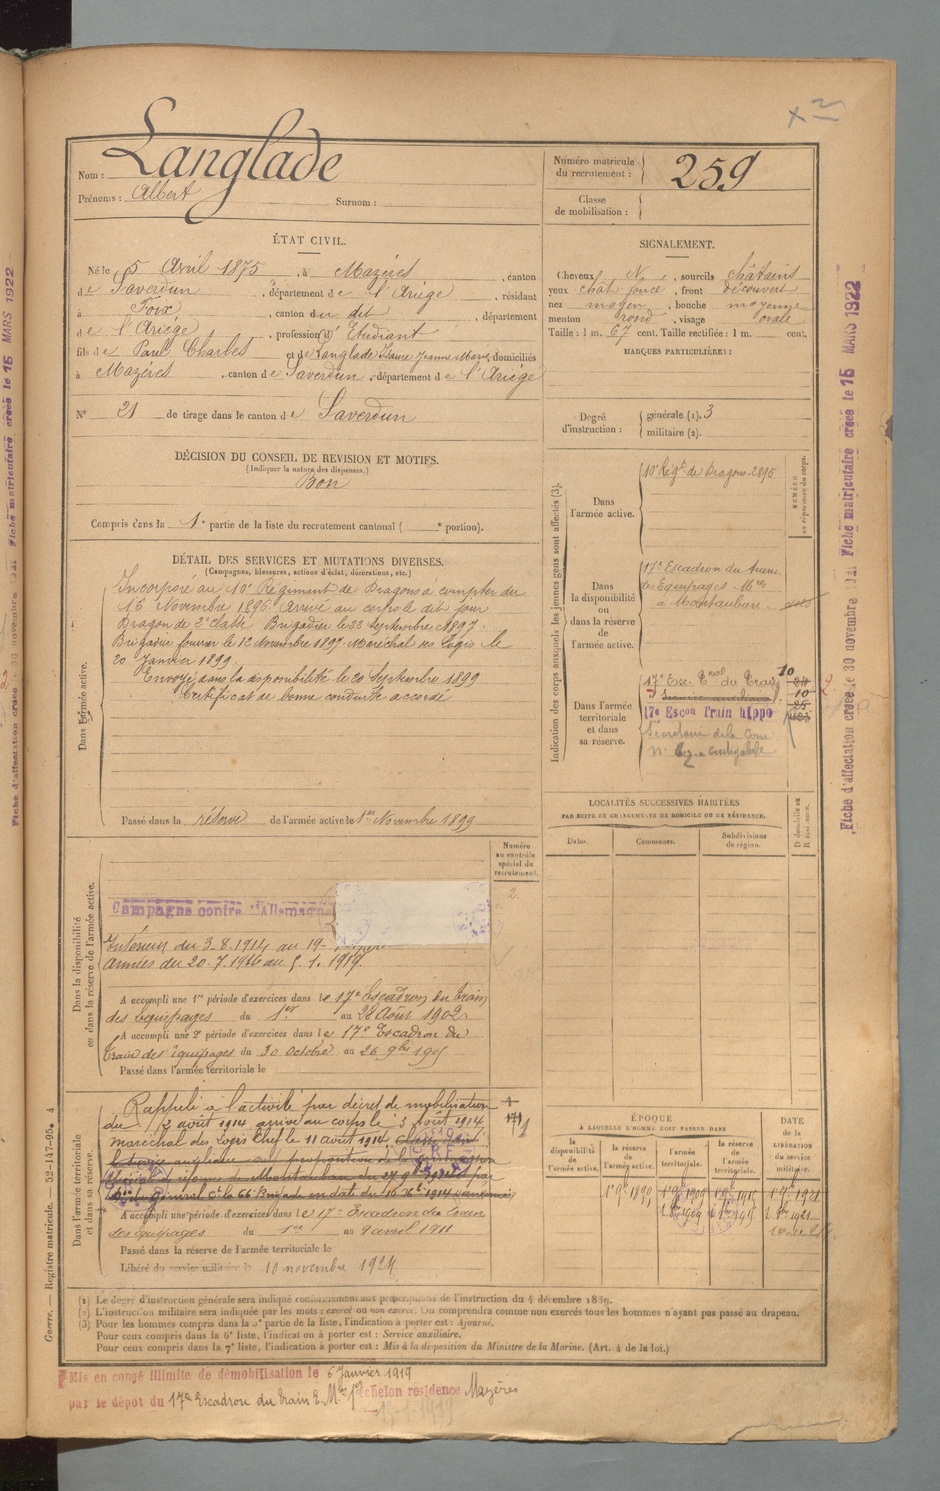 Nom : Langlade
Prénoms : Albert Surnom :
Numéro matricule du recrutement : 259
Classe de mobilisation :
ÉTAT CIVIL.
Né le 5 Avril 1875, à Mazères, canton
de Saverdun, département de l'Ariège, résidant
à Foix, canton du dit, département
de l'Ariège, profession d'Etudiant
fils de Paul Charles et de Langlade Isaure Jeanne Marie, domiciliés
à Mazères, canton de Saverdun, département de l'Ariège
N° 21 de tirage dans le canton de Saverdun
SIGNALEMENT.
Cheveux N, sourcils châtains
yeux chât foncé, front découvert
nez moyen, bouche moyenne
menton rond, visage ovale
Taille : 1 m. 67 cent. Taille rectifiée : 1 m. cent.
MARQUES PARTICULIÈRES :
Degré d'instruction : générale (1). 3
militaire (2).
DÉCISION DU CONSEIL DE REVISION ET MOTIFS.
(Indiquer la nature des dispenses.)
Bon
Compris dans la 1e partie de la liste du recrutement cantonal ( e portion).
DÉTAIL DES SERVICES ET MUTATIONS DIVERSES.
(Campagnes, blessures, actions d'éclat, décorations, etc.)
Dans l'armée active.
Incorporé au 10e Régiment de Dragons à compter du
16 Novembre 1896. Arrivé au corps le dit jour
Dragon de 2e classe. Brigadier le 22 Septembre 1897.
Brigadier fourrier le 12 Novembre 1897. Maréchal des Logis le
20 Janvier 1899
Envoyé dans la disponibilité le 20 Septembre 1899
Certificat de bonne conduite accordé
Passé dans la réserve de l'armée active le 1er Novembre 1899
Indication des corps auxquels les jeunes gens sont affectés (3).
NUMÉRO au répertoire du corps.
Dans l'armée active.
10e Régt de Dragons 2895
Dans la disponibilité ou dans la réserve de l'armée active.
17e Escadron du train
des Equipages Mres
à Montauban
Dans l'armée territoriale et dans sa réserve.
17e Esc. Eval du Train 10
17e Escon Train hippo
LOCALITÉS SUCCESSIVES HABITÉES
PAR SUITE DE CHANGEMENTS DE DOMICILE OU DE RÉSIDENCE.
Dates. Communes. Subdivisions de région. D domicile ou R résidence.
Numéro au contrôle spécial du recrutement.
2
Dans la disponibilité ou dans la réserve de l'armée active.
Campagne contre Allemagne
Intérieur du 3-8.1914 au 19-
armées du 20.7.1916 au 5.1.1919.
A accompli une 1re période d'exercices dans le 17e Escadron du train
des équipages du 1er au 28 Août 1902
A accompli une 2e période d'exercices dans le 17e Escadron du
train des équipages du 30 Octobre au 26 9bre 1905
Passé dans l'armée territoriale le
Dans l'armée territoriale et dans sa réserve.
Rappelé à l'activité par décret de mobilisation
du 2 août 1914 arrivé au corps le 3 Août 1914
maréchal des Logis Chef le 11 août 1914.
A accompli une période d'exercices dans le 17e Escadron du train
des équipages du 1er au 9 avril 1911
Passé dans la réserve de l'armée territoriale le
Libéré du service militaire le 10 novembre 1924
ÉPOQUE
À LAQUELLE L'HOMME DOIT PASSER DANS
la disponibilité de l'armée active.
la réserve de l'armée active.
l'armée territoriale.
la réserve de l'armée territoriale.
DATE de la LIBÉRATION du service militaire.
(1) Le degré d'instruction générale sera indiqué conformément aux prescriptions de l'instruction du 4 décembre 1889.
(2) L'instruction militaire sera indiquée par les mots : exercé ou non exercé. On comprendra comme non exercés tous les hommes n'ayant pas passé au drapeau.
(3) Pour les hommes compris dans la 5e partie de la liste, l'indication à porter est : Ajourné.
Pour ceux compris dans la 6e liste, l'indication à porter est : Service auxiliaire.
Pour ceux compris dans la 7e liste, l'indication à porter est : Mis à la disposition du Ministre de la Marine. (Art. 4 de la loi.)
Mis en congé illimité de démobilisation le 6 Janvier 1919
par le dépot du 17e Escadron du train E. Mres échelon residence Mazères
Guerre. — Registre matricule. — 52-147-95. 4
Fiche d'affectation créée le 30 novembre Fiche matriculaire créée le 15 MARS 1922
Fiche d'affectation créée le 30 novembre Fiche matriculaire créée le 15 MARS 1922